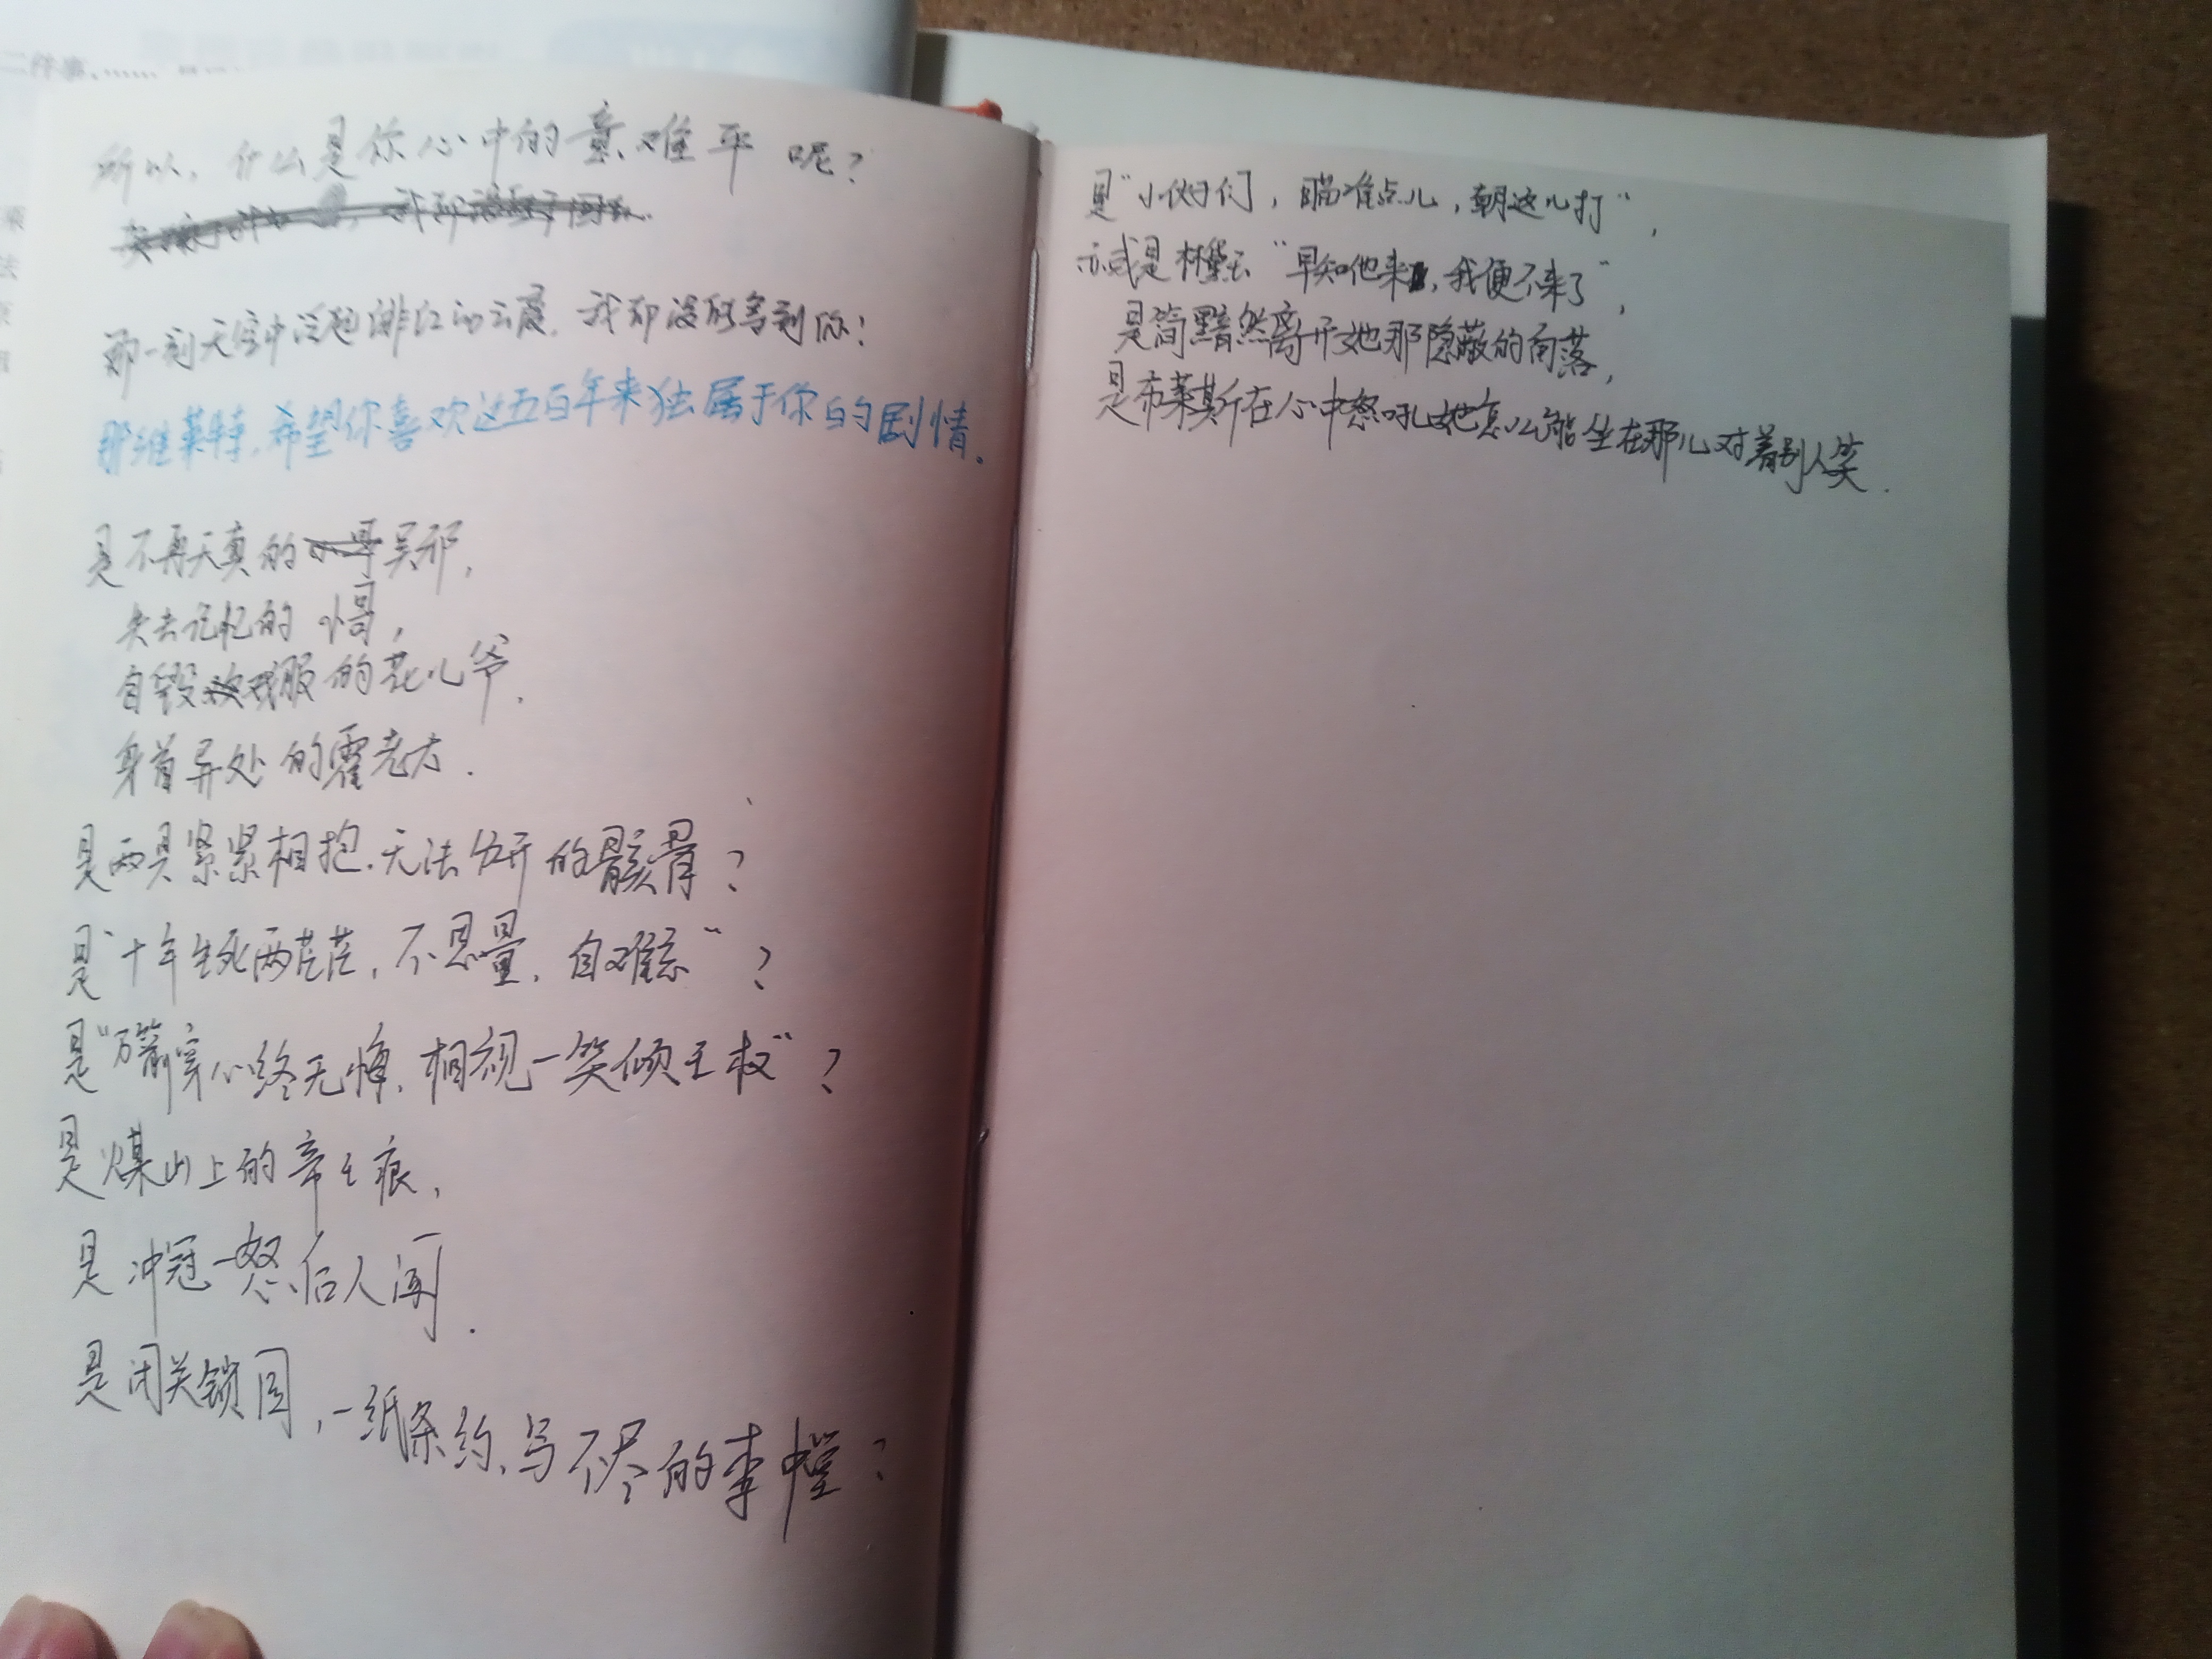 二件事……
所以,什么是你心中的意难平呢?
那一刻天空中泛起绯红的云霞,我却没能等到你!
那维莱特,希望你喜欢这五百年来独属于你的剧情。
是不再天真的吴邪,
失去记忆的小哥,
自毁戏服的花儿爷,
身首异处的霍老太.
是两具紧紧相抱.无法分开的骸骨?
是"十年生死两茫茫,不思量,自难忘"?
是"万箭穿心终无悔,相视一笑倾王权"?
是煤山上的帝王痕,
是冲冠一怒后人闻.
是闭关锁国,一纸条约,写不尽的李中堂?
是"小伙子们,瞄准点儿,朝这儿打",
亦或是林黛玉"早知他来,我便不来了",
是简黯然离开她那隐蔽的角落,
是布莱斯在心中怒吼她怎么能坐在那儿对着别人笑.